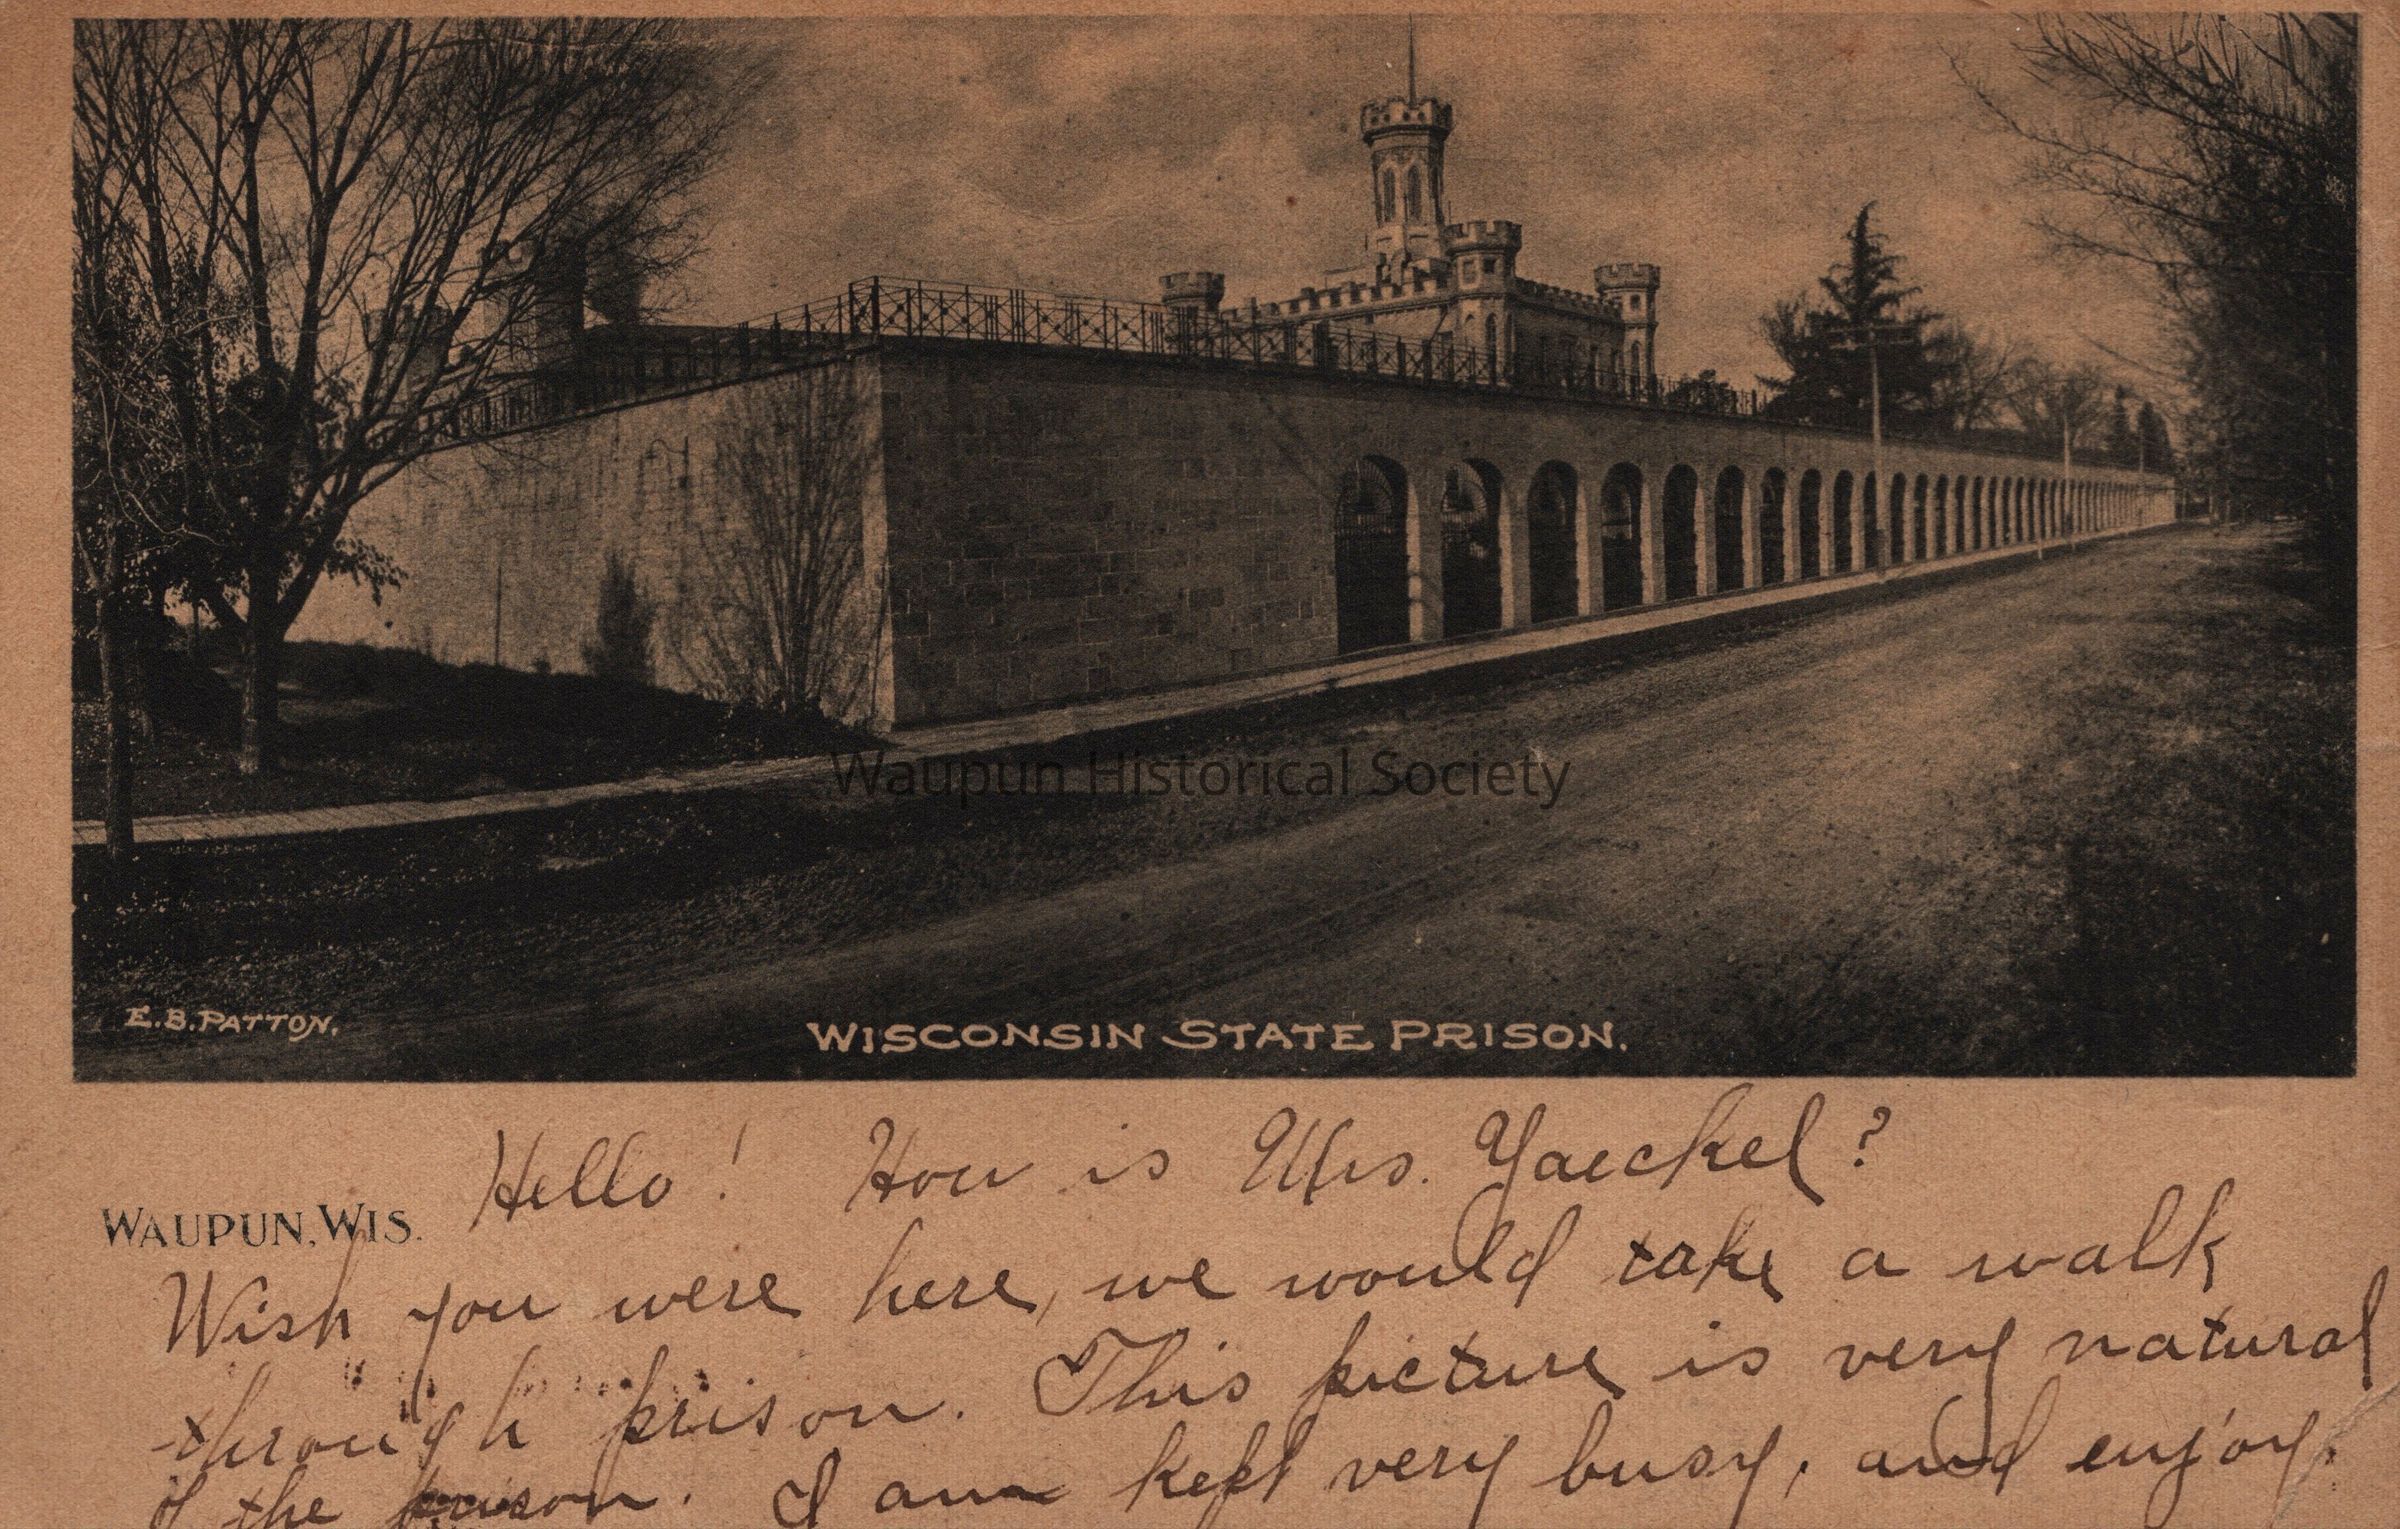 Waupun Historical Society
E.B. PATTON.
WISCONSIN STATE PRISON.
WAUPUN, WIS.
Hello! How is Mrs. Yaeckel?
Wish you were here, we would take a walk
through prison. This picture is very natural
of the prison. I am kept very busy, and enjoy